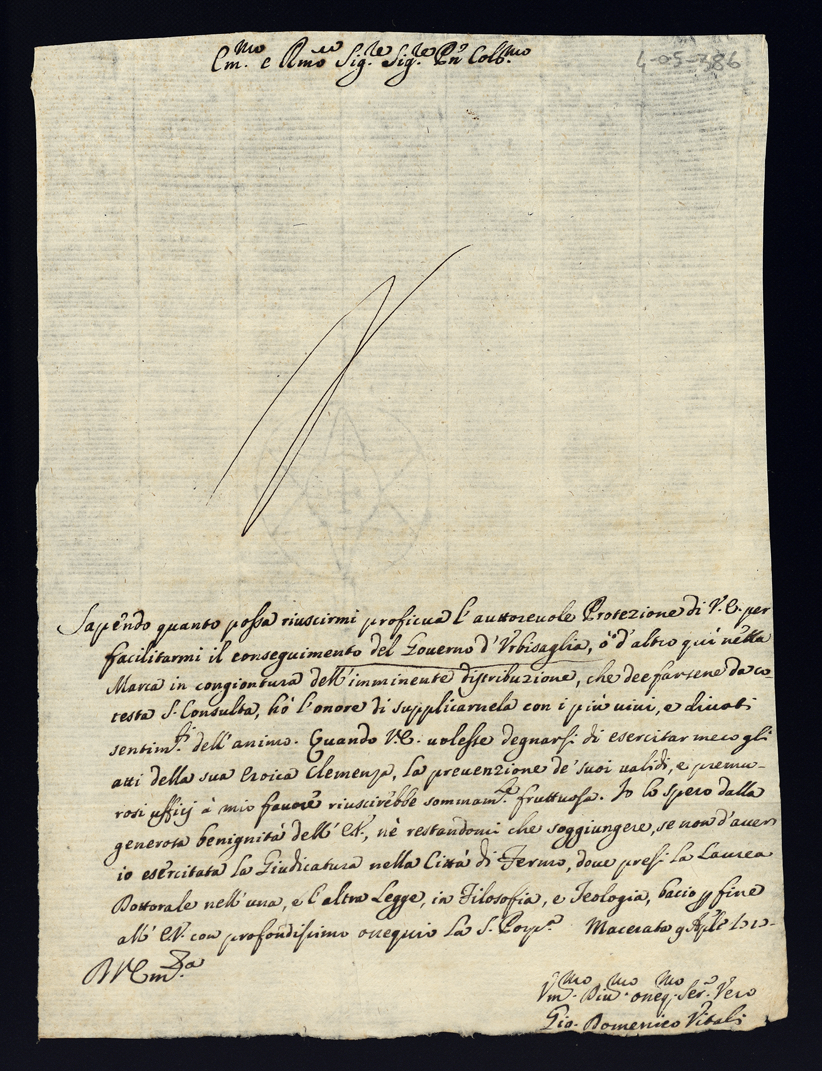 Em.mo e Rmo Sig.re Sig.re Pn̄ Col.mo
4-05-386
Sapendo quanto possa riuscirmi proficua l'auttorevole Protezione di V.E. per
facilitarmi il conseguimento del Governo d'Urbisaglia, ò d'altro quì nella
Marca in congiontura dell'imminente distribuzione, che dee farsene da co-
testa S. Consulta, hò l'onore di supplicarnela con i più vivi, e divoti
sentim.ti dell'animo. Quando V.E. volesse degnarsi di esercitar meco gli
atti della sua eroica Clemenza, la prevenzione de' suoi validi, e premu-
rosi ufficj à mio favore riuscirebbe sommam.te fruttuosa. Io lo spero dalla
generosa benignità dell'E.V., nè restandomi che soggiungere, se non d'aver
io esercitata la Giudicatura nella Città di Fermo, dove presi la Laurea
Dottorale nell'una, e l'altra Legge, in Filosofia, e Teologia, bacio p fine
all'E.V. con profondissimo ossequio la S. Porp.a Macerata 9 Aple
Vm.mo Div.mo osseq.mo Ser. Vero
Gio. Domenico Vitali